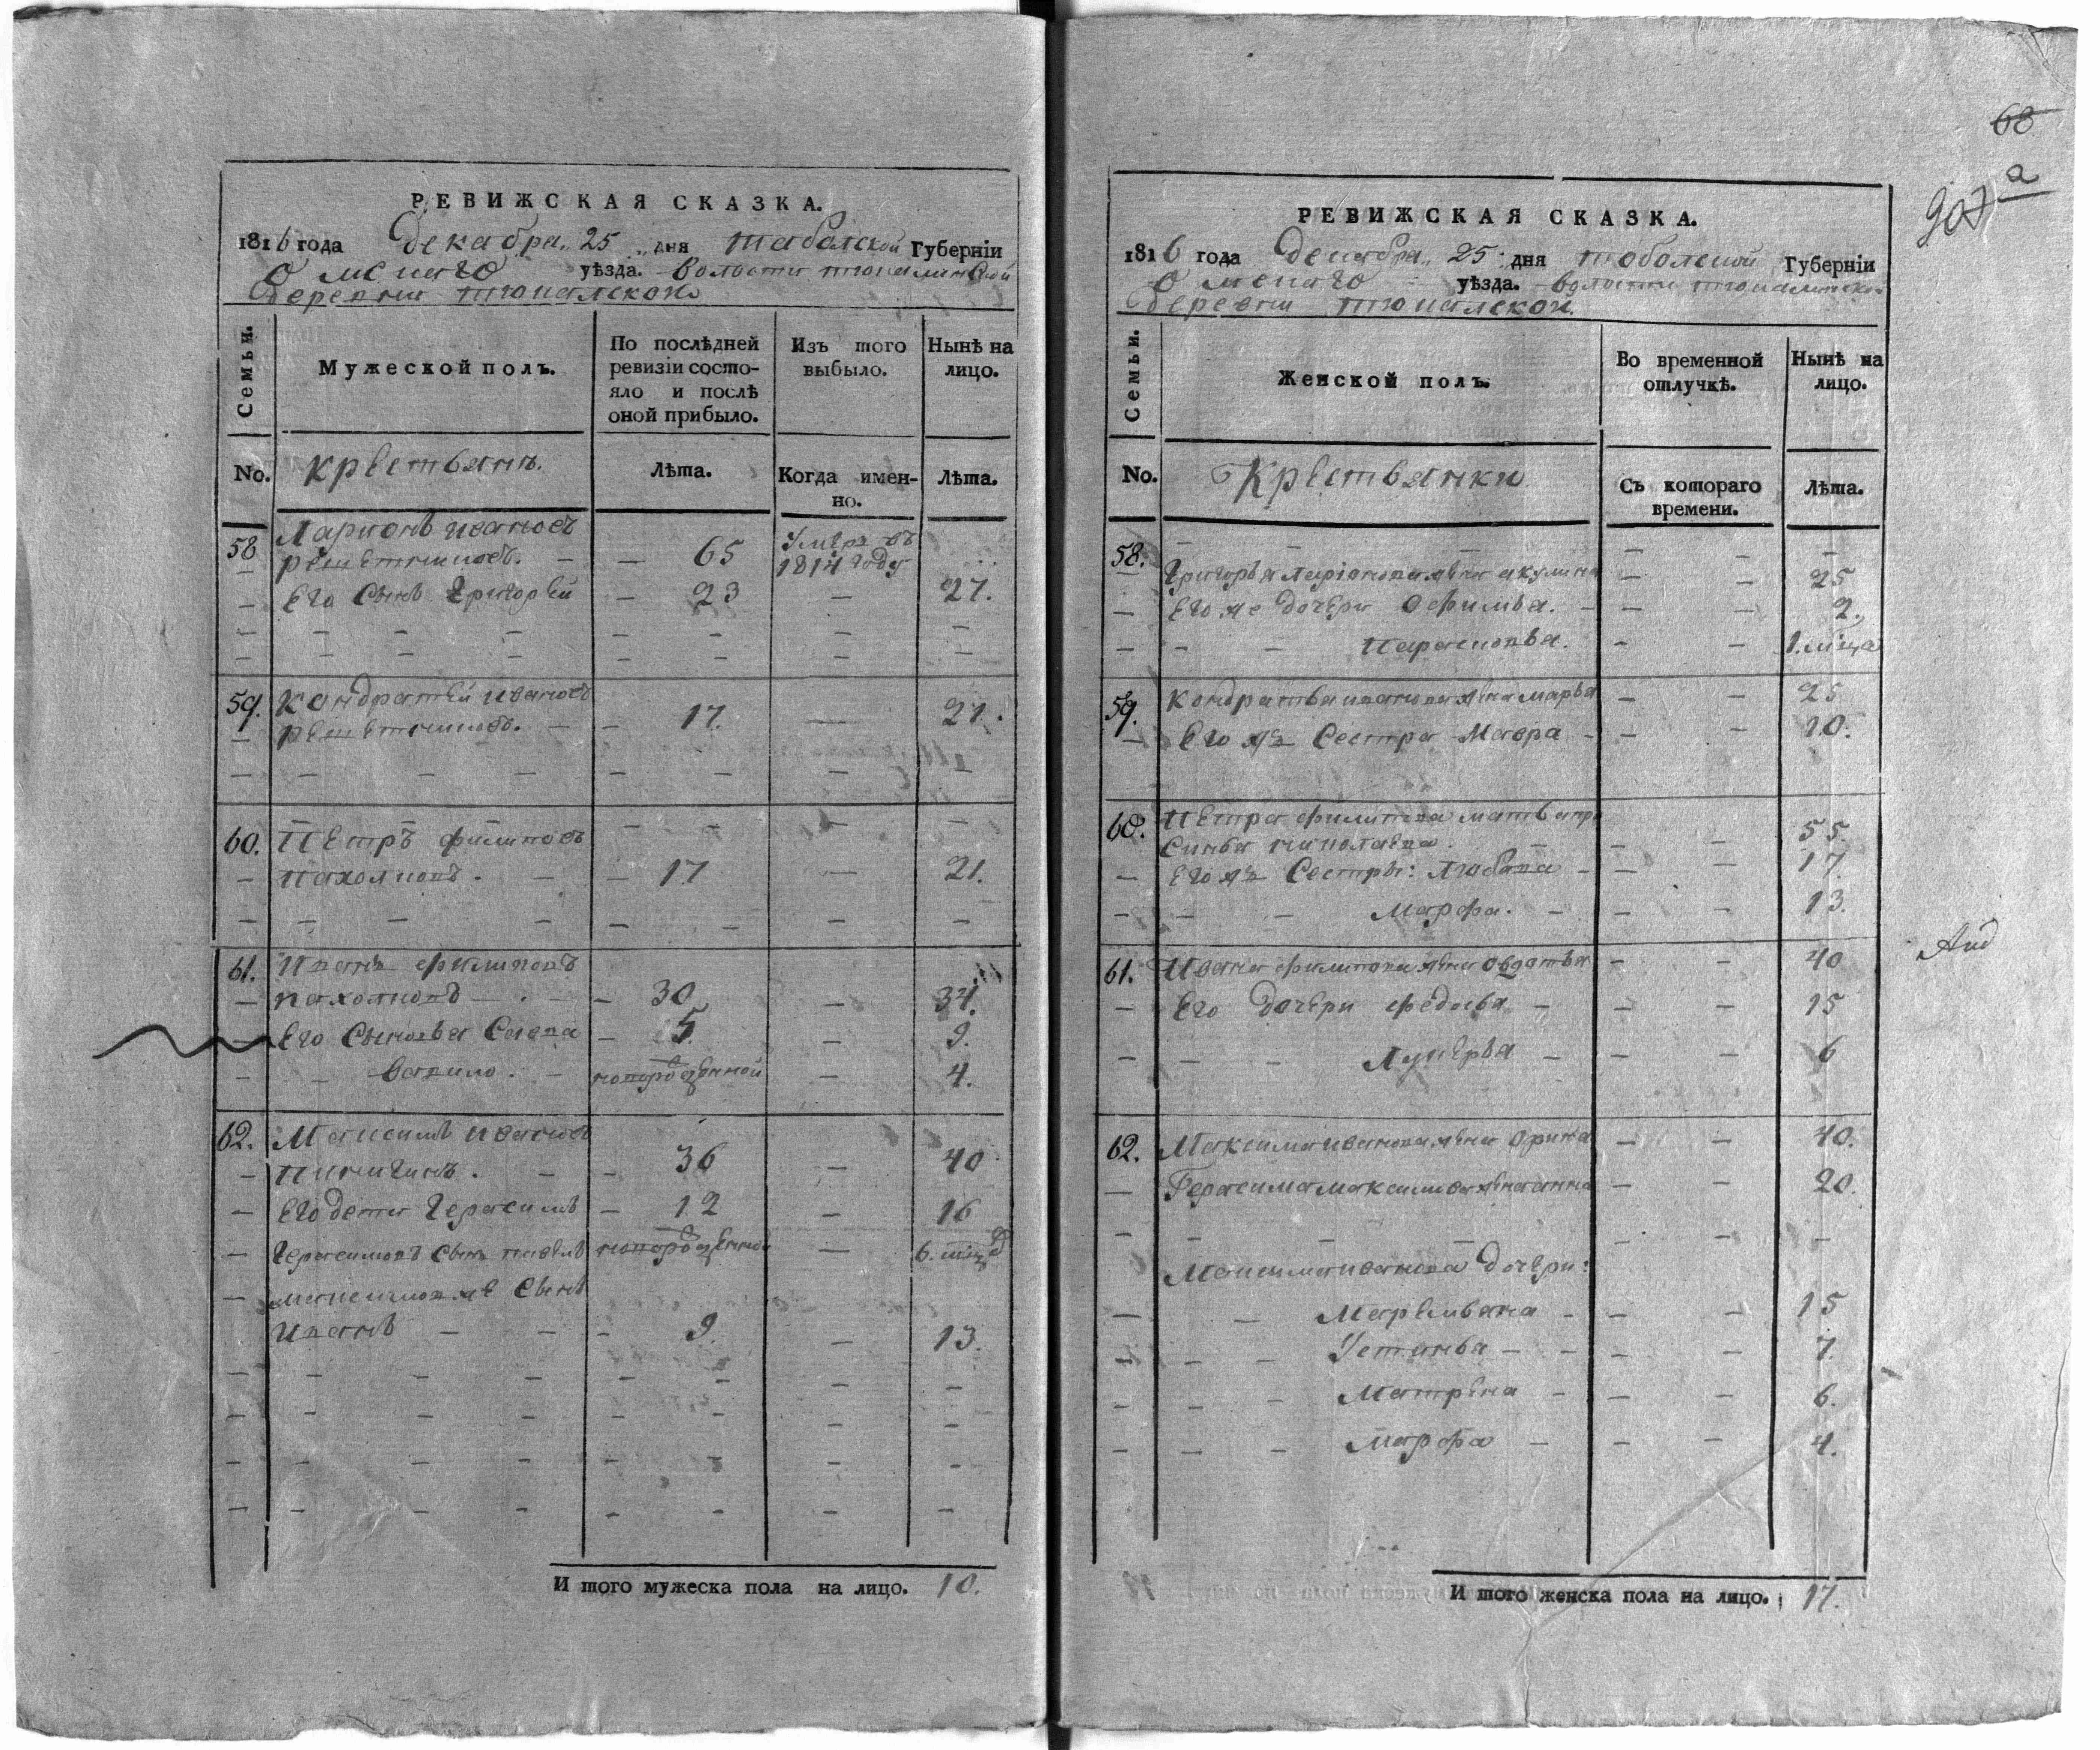 РЕВИЖСКАЯ СКАЗКА.
1816 года Декабря 25 дня Таболской Губернїи
Омскаго уѣзда. волости тюкалинской
деревни тюкалской
Семьи.
Мужеской полъ.
По послѣдней ревизїи состо-
яло и послѣ
оной прибыло.
Изъ того выбыло.
Нынѣ на лицо.
No. крестьянъ. Лѣта. Когда имен-
но. Лѣта.
58 Ларионъ ивановъ
решетниковъ. — — 65 Умеръ въ 1814 году
— Его Сынъ Григорей — 23 — 27.
59. Кондратей ивановъ
решетниковъ. — — 17. — 21.
60. Петръ филиповъ
— пахомовъ. — — 17 — 21.
61. Иванъ филиповъ
— пахомовъ — — 30 — 34.
— Его Сыновья Савва — 5. — 9.
— — вавило. — новорожденной — 4.
62. Максимъ ивановъ
— пинигинъ. — — 36 — 40
— Его дети Герасимъ — 12 — 16
— Герасимовъ сынъ павелъ новорожденной — 6. мцѣ
— максимов же сынъ
Иванъ — — 9. — 13.
И того мужеска пола на лицо. 10.
68
а
РЕВИЖСКАЯ СКАЗКА.
1816 года Декабря 25 дня тоболской Губернїи
Омскаго уѣзда. волости тюкалинско
деревни тюкалской.
Семьи.
Женской полъ.
Во временной отлучкѣ.
Нынѣ на лицо.
No. Крестьянки Съ котораго
времени. Лѣта.
58. — Григорья Ларіонова жена акулина — — 25
— Его же дочери Офимья. — — — 2.
— — — Парасковья. — — 1. мцъа
59. Кондратья иванова жена марья — — 25
— Его же Сестра Мавра — — — 20.
60. Петра филипова мать
Синья николаева. — — — 55.
— Его же Сестры: Любава — — — 17.
— — — Марфа. — — — 13.
61. Ивана филипова жена Овдотья — — 40
— Его дочери федосья — — — 15
— — — Лукерья — — — 6
62. Максима иванова жена Орина — — 40.
— Герасима максимова жена анна — — 20.
Максима иванова дочери:
— — Маремьяна — — — 15
— — — Устинья — — — — 7.
— — — Матрена — — — 6.
— — — Марфа — — — 4.
И того женска пола на лицо. 17.